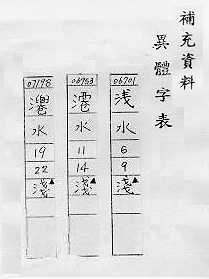 補充資料
異體字表
06701
浅
水
6
9
淺▲
06953
水
11
14
淺▲
07198
水
19
22
淺▲